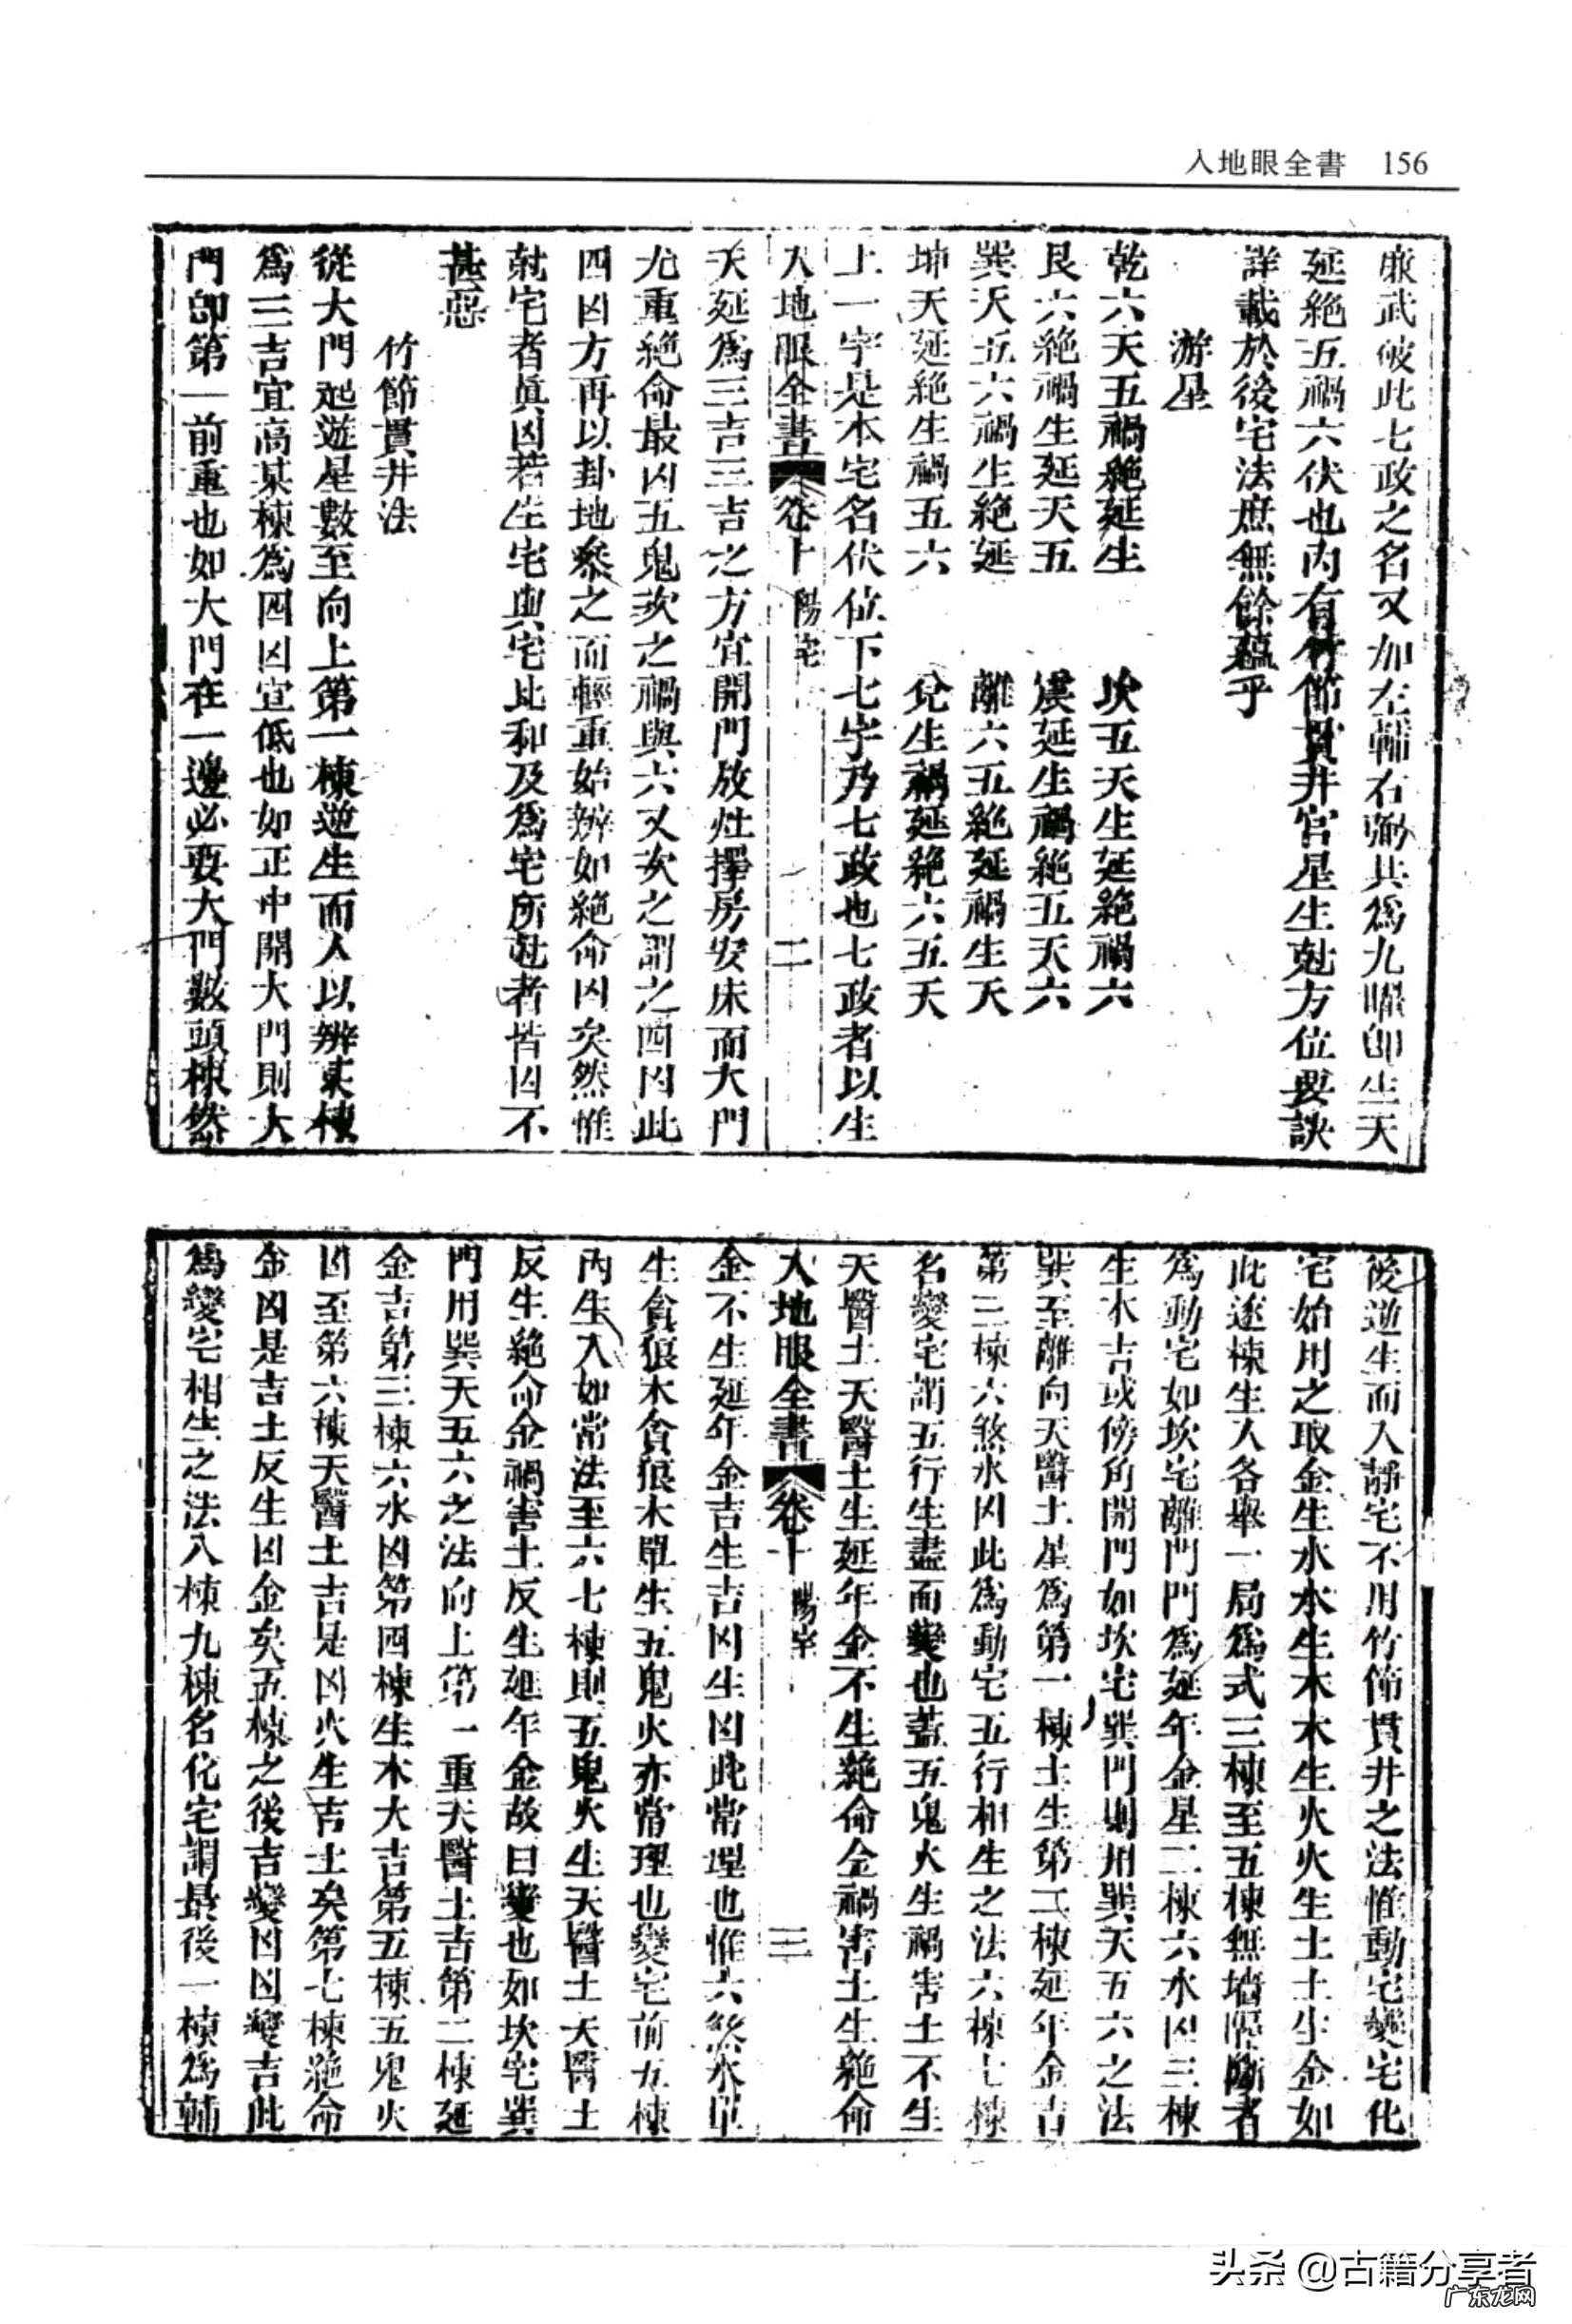 入地眼全書 156
廉武破此七政之名又加左輔右弼共爲九曜即生天
延絕五禍六伏也內有竹節貫井宮星生尅方位要訣
詳載於後宅法庶無餘蘊乎
游星
乾六天五禍絕延生 坎五天生延絕禍六
艮六絕禍生延天五 震延生禍絕五天六
巽天五六禍生絕延 離六五絕延禍生天
坤天延絕生禍五六 兌生禍延絕六五天
上一字是本宅名伏位下七字乃七政也七政者以生
入地眼全書 卷十 陽宅 二
天延爲三吉三吉之方宜開門放灶擇房安床而大門
尤重絕命最凶五鬼次之禍與六又次之謂之四凶此
四凶方再以卦地叅之而輕重始辨如絕命凶矣然惟
尅宅者眞凶若生宅與宅比和及爲宅所尅者皆凶不
甚惡
竹節貫井法
從大門起遊星數至向上第一棟逆生而入以辨某棟
爲三吉宜高某棟爲四凶宜低也如正中開大門則大
門即第一前重也如大門在一邊必要大門數頭棟然
後逆生而入靜宅不用竹節貫井之法惟動宅變宅化
宅始用之取金生水水生木木生火火生土土生金如
此逐棟生入各舉一局爲式三棟至五棟無墻隔斷者
爲動宅如坎宅離門門爲延年金星二棟六水凶三棟
生木吉或傍角開門如坎宅巽門則用巽天五六之法
巽至離向天醫土星爲第一棟土生第二棟延年金吉
第三棟六煞水凶此爲動宅五行相生之法六棟七棟
名變宅謂五行生盡而變也蓋五鬼火生禍害土不生
天醫土天醫土生延年金不生絕命金禍害土生絕命
入地眼全書 卷十 陽宅 三
金不生延年金吉生吉凶生凶此常理也惟六煞水單
生貪狼木貪狼木單生五鬼火亦常理也變宅前五棟
內生入如常法至六七棟則五鬼火生天醫土天醫土
反生絕命金禍害土反生延年金故曰變也如坎宅巽
門用巽天五六之法向上第一重天醫土吉第二棟延
金吉第三棟六水凶第四棟生木大吉第五棟五鬼火
凶至第六棟天醫土吉是凶火生吉土矣第七棟絕命
金凶是吉土反生凶金矣五棟之後吉變凶凶變吉此
爲變宅相生之法八棟九棟名化宅謂最後一棟爲輔
头条 @古籍分享者
广东龙网